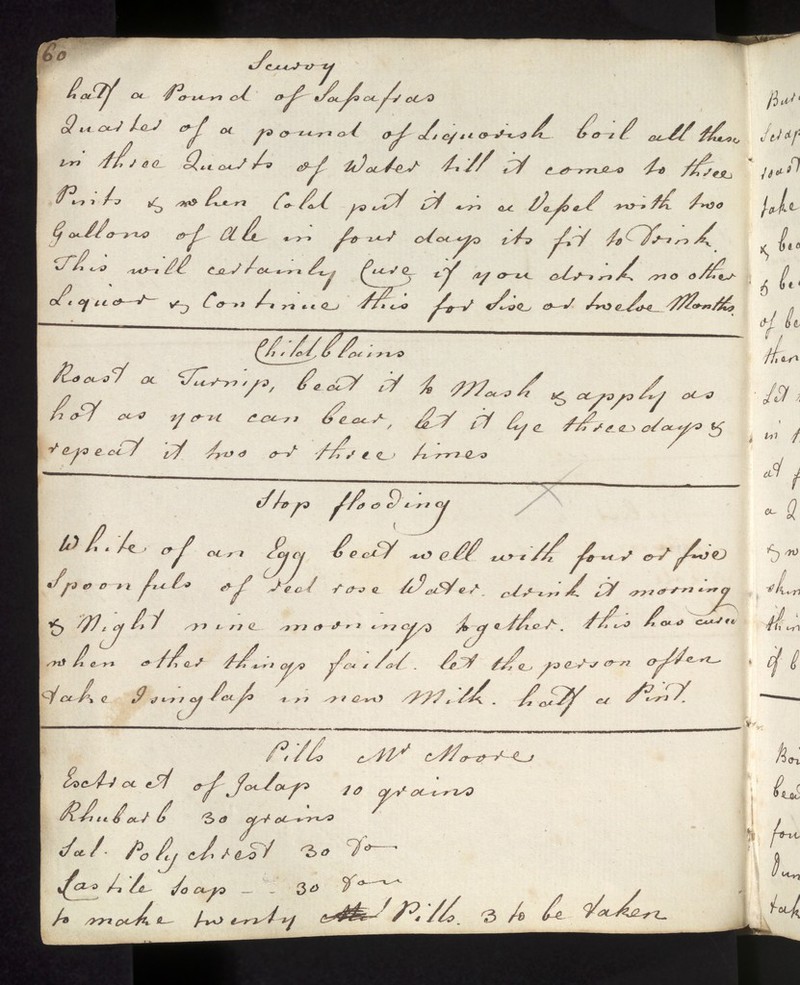 60
Scurvy
half a Pound of Sasafras
Quarter of a pound of Liquorish boil all these
in three Quarts of Water till it comes to three
Pints & when Cold put it in a Vessel with two
Gallons of Ale in four days its fit to Drink.
This will certainly Cure if you drink no other
Liquor & Continue this for Sixe or twelve Months.
Childblains
Roast a Turnip, beat it to Mash & apply as
hot as you can bear, let it lye three days &
repeat it two or three times
Stop flooding
White of an Egg beat well with four or five
Spoonfuls of red rose Water. drink it morning
& Night nine mornings together. this has cured
when other things faild. let the person often
take Isinglass in new Milk. half a Pint.
Pills Mr Moore
Exctract of Jalap 10 grains
Rhubarb 30 grains
Sal. Polychrest 30 Do
Castile Soap - - 30 Do
to make twenty Pills. 3 to be taken
take
&
&
of
then
Let
in
at
a
&
if
tak